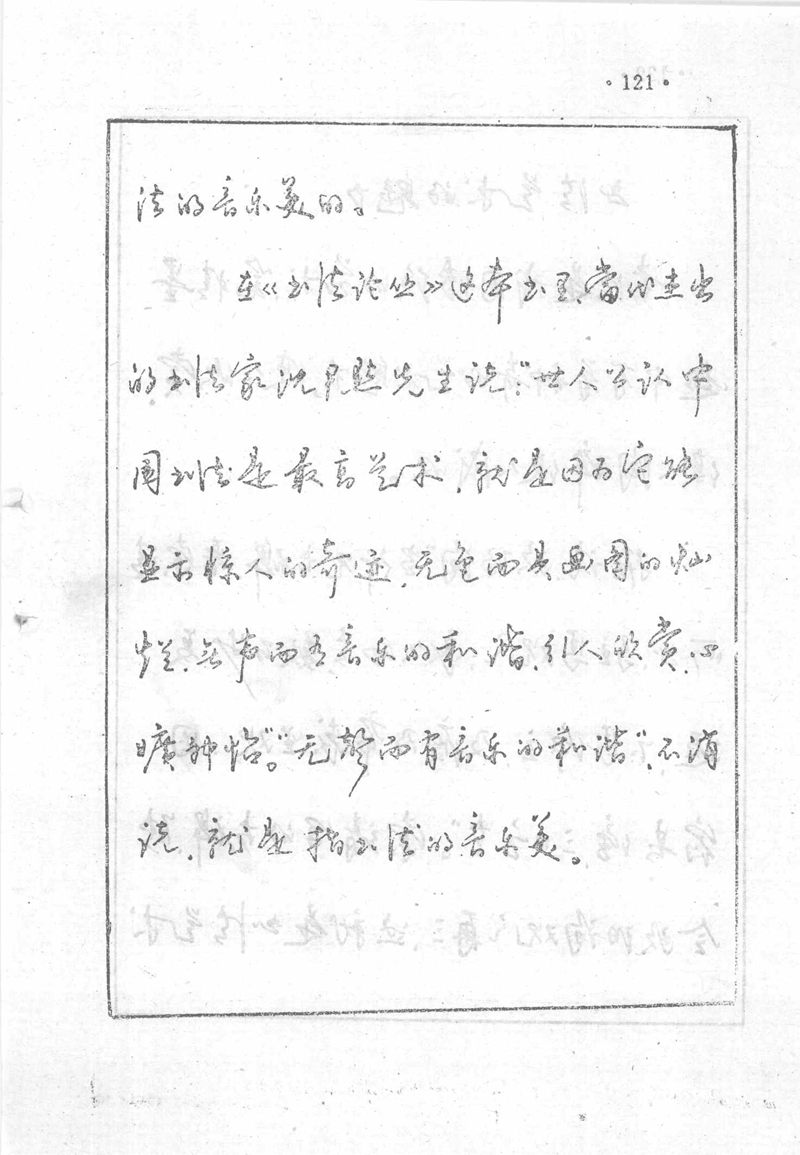 ·121·
法的音乐美的。
在《书法论丛》这本书里，当代杰出
的书法家沈尹默先生说：“世人公认中
国书法是最高艺术，就是因为它能
显示惊人的奇迹，无色而具画图的灿
烂，无声而有音乐的和谐，引人欣赏，心
旷神怡。”“无声而有音乐的和谐”，不消
说，就是指书法的音乐美。